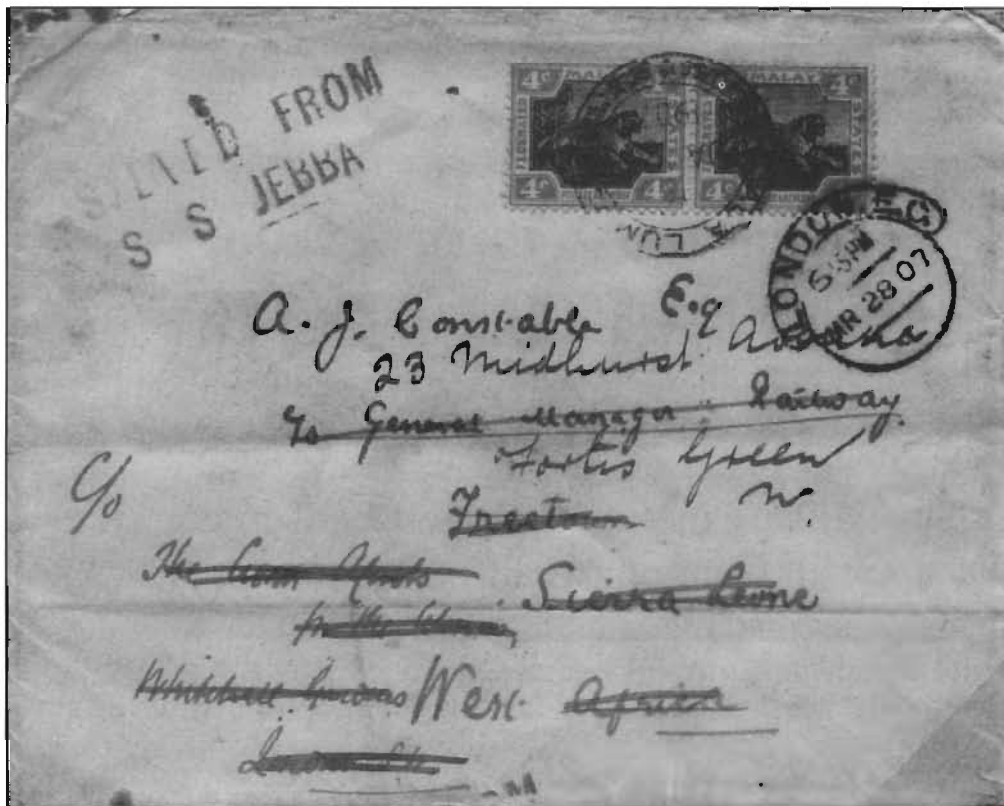 SALVED FROM
S S JEBBA
4c MALAY 4c
4c 4c
MALAY 4c
STATES
4c
LONDON E.C.
5.15 PM
MR 28 07
A. J. Constable Esq
23 Midhurst Avenue
c/o General Manager Railway
Fortis Green
N.
C/o
Freetown
The Crown Agents
Sierra Leone
for the
Whitehall Gardens West Africa
London